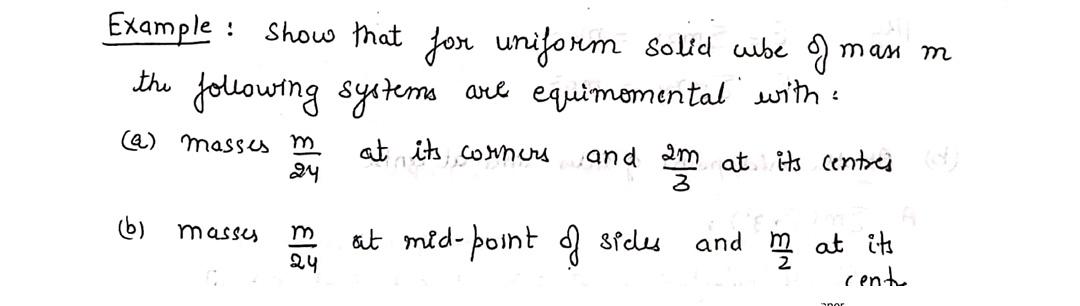 Example : Show that for uniform solid cube of mass m
the following systems are equimomental with :
(a) masses m/24 at its corners and 2m/3 at its centre
(b) masses m/24 at mid-point of sides and m/2 at its
centre